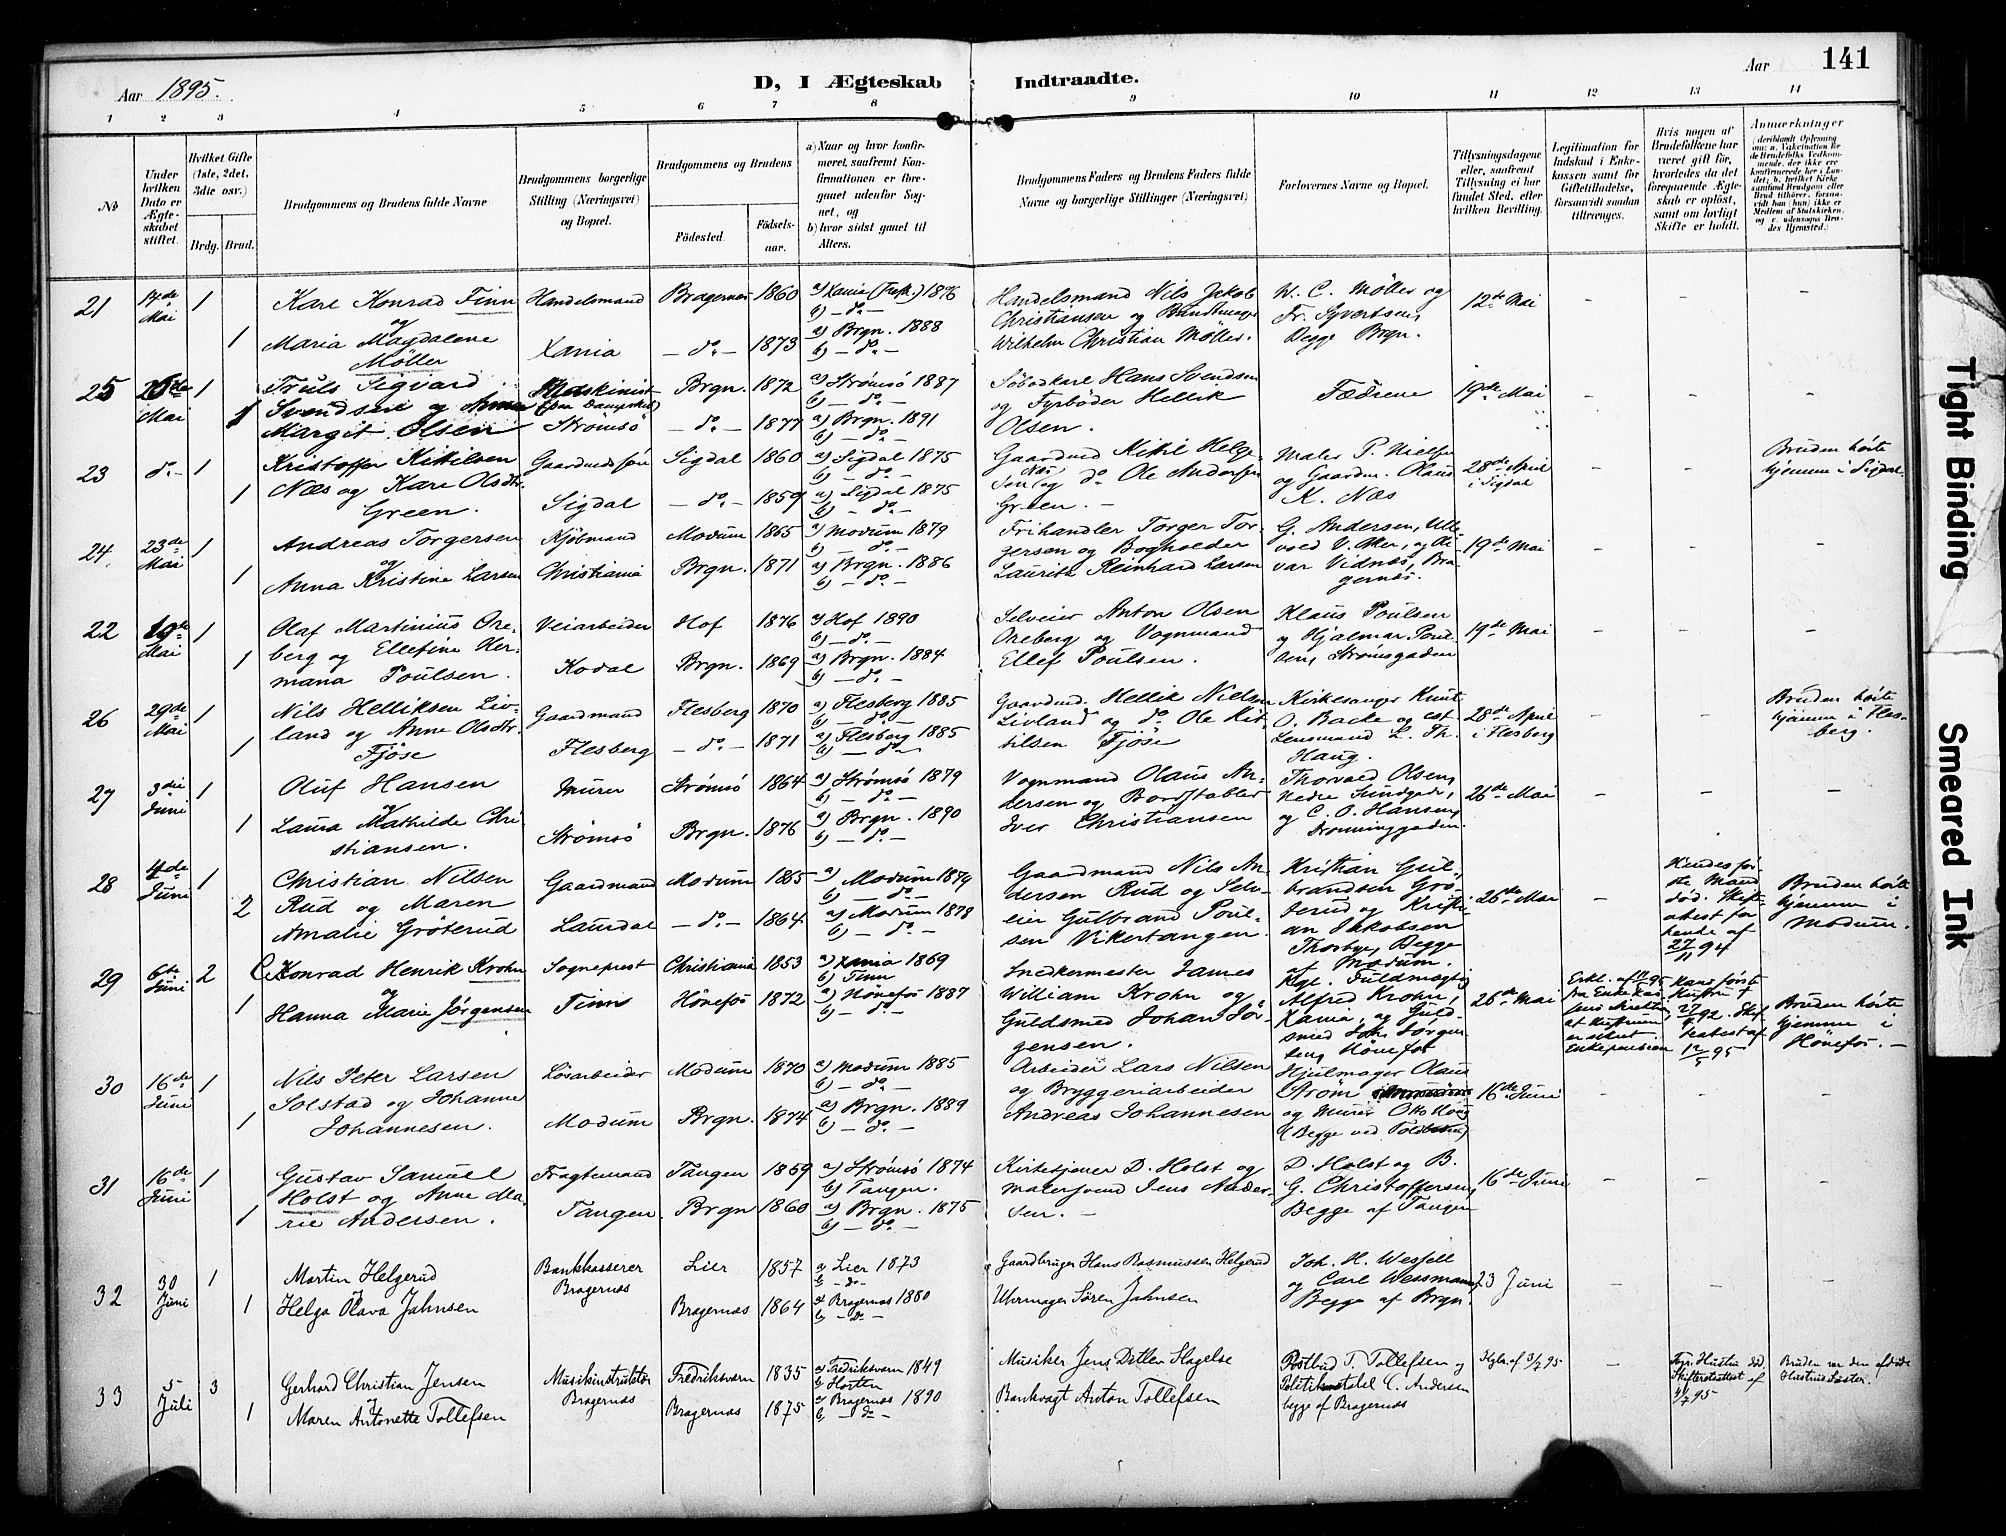 141
Aar 1895.
D, I Ægteskab Indtraadte.
Aar
1 2 3 4 5 6 7 8 9 10 11 12 13 14
№
Under hvilken Dato er Ægteskabet stiftet.
Hvilket Gifte (1ste, 2det, 3die osv.)
Brdg. Brud.
Brudgommens og Brudens fulde Navne
Brudgommens borgerlige Stilling (Næringsvei) og Bopæl.
Brudgommens og Brudens
Fødested. Fødselsaar.
a) Naar og hvor konfirmeret, saafremt Konfirmationen er foregaaet udenfor Sognet, og
b) hvor sidst gaaet til Alters.
Brudgommens Faders og Brudens Faders fulde Navne og borgerlige Stillinger (Næringsvei)
Forlovernes Navne og Bopæl.
Tillysningsdagene eller, saafremt Tillysning ei har fundet Sted, efter hvilken Bevilling.
Legitimation for Indskud i Enkekassen samt for Giftetilladelse, forsaavidt saadan tiltrænges.
Hvis nogen af Brudefolkene har været gift før, hvorledes da det foregaaende Ægteskab er opløst, samt om lovligt Skifte er holdt.
Anmærkninger
(deriblandt Oplysning om: a. Vakcination for de Brudefolks Vedkommende, der ikke ere konfirmerede her i Landet; b. hvilket Kirkesamfund Brudgom eller Brud tilhører, forsaavidt han (hun) ikke er Medlem af Statskirken, og c. udensogns Brudes Hjemsted.)
21 17de Mai 1 Karl Konrad Finn Handelsmand Bragernæs 1860 a) Xania (Trefk.) 1876 b) -do-
Handelsmand Nils Jakob Christiansen og
Wilhelm Christian Møller.
W. C. Møller og Fr. Syvertsen, Begge Brgn.
12te Mai – – –
og 1 Maria Magdalene Møller Xania -do- 1873 a) Brgn. 1888 b) -do-
25 26de Mai 1 Truls Sigvard Svendsen og Anna Margit Olsen
Maskinist (paa Dampskib) Strømsö
Brgn. 1872 a) Strømsö 1887 b) -do-
1 -do- 1877 a) Brgn. 1891 b) -do-
Hans Svendsen og Fyrbøder Hellik Olsen.
Fædrene 19de Mai – – –
23 do- 1 Kristoffer Kittilsen Næs og Kari Olsdtr. Green.
Gaardmandssøn Sigdal
Sigdal 1860 a) Sigdal 1875 b) -do-
1 -do- 1859 a) Sigdal 1875 b) -do-
Gaardmd Kitil Helgesen Næs og do Ole Andersen Green. -
Maler P. Nielsen og Gaardm. Olaus K. Næs
28de April i Sigdal – –
Bruden hørte hjemme i Sigdal
24. 23de Mai 1 Andreas Torgersen og Anna Kristine Larsen
Kjøbmand Christiania
Modum 1865 a) Modum 1879 b) -do-
1 Brgn. 1871 a) Brgn. 1886 b) -do-
Frihandler Torger Torgersen og Bogholder Lauritz Reinhard Larsen
G. Andersen, V. Aker, og Vidnæs, Bragernæs.
19de Mai – – –
22 19de Mai 1 Olaf Martinius Oreberg og Ellefine Hermana Poulsen.
Veiarbeider Kodal
Hof 1876 a) Hof 1890 b) -do-
1 Brgn. 1869 a) Brgn. 1884 b) -do-
Selveier Anton Olsen Oreberg og Vognmand Ellef Poulsen.
Klaus Poulsen og Hjalmar Poulsen, Strømsgaden
19de Mai – – –
26 29de Mai 1 Nils Helliksen Livland og Anne Olsdtr. Fjöse
Gaardmand Flesberg
Flesberg 1870 a) Flesberg 1885 b) -do-
1 -do- 1871 a) Flesberg 1885 b) -do-
Gaardmd. Hellik Nielsen Livland og do Ole Kittilsen Fjöse
Kirkesanger Knut O. Backe og cst. Lensmand L. Th. Haug.
28de April i Flesberg – –
Bruden hørte hjemme i Flesberg.
27 3die Juni 1 Oluf Hansen Laura Mathilde Christiansen.
Murer Strömsö
Strömsö 1864 a) Strömsö 1879 b) -do-
1 Brgn. 1876 a) Brgn. 1890 b) -do-
Vognmand Olaus Andersen og Bordstabler Iver Christiansen
Thorvald Olsen, Nedre Sundgade, og C. O. Hansen, Dronninggaden.
26de Mai – – –
28 4de Juni 1 Christian Nilsen Rud og Maren Amalie Gröterud
Gaardmand Laurdal
Modum 1865 a) Modum 1879 b) -do-
2 -do- 1864 a) Modum 1878 b) -do-
Gaardmand Nils Andersen Rud og Selveier Gulbrand Poulsen Vikertangen.
Kristian Gulbrandsen Gröterud og Kristian Jakobsen Thorbye, Begge af Modum.
26de Mai –
Hendes første Mand død. Skifteattest foreliggende af 27/11 94
Bruden hørte hjemme i Modum.
29 6te Juni 2 Conrad Henrik Krohn og Hanna Marie Jørgensen
Sogneprest Tinn
Christiania 1853 a) Xania 1869 b) Tinn
1 Hönefos 1872 a) Hönefos 1887 b) -do-
Snedkermester James William Krohn og Guldsmed Johan Jörgensen.
Kgl. Fuldmægtig Alfred Krohn, Xania, og Guldsmed Joh. Jørgensen, Hönefos
26de Mai
Hans første Hustru †
Skifteattest af 12/5 95
Bruden hørte hjemme i Hönefos. -
30 16de Juni 1 Nils Peter Larsen Solstad og Johanne Johannesen.
Løsarbeider Modum
Modum 1870 a) Modum 1885 b) -do-
1 Brgn. 1874 a) Brgn. 1889 b) -do-
Arbeider Lars Nilsen og Bryggeriarbeider Andreas Johannesen
Hjulmager Olaus Strøm og Murer Otto (Begge ved Toldboden)
16de Juni – – –
31 16de Juni 1 Gustav Samuel Holst og Anne Marie Andersen.
Fragtemand Tangen.
Tangen 1859 a) Strømsö 1874 b) Tangen.
1 Brgn 1860 a) Brgn. 1875 b) -do-
Kirketjener D. Holst og Malersvend Jens Andersen. -
D. Holst og B. G. Christoffersen, Begge af Tangen
16de Juni – – –
32 30 Juni 1 Martin Helgerud og Helga Olava Jahnsen
Bankkasserer Bragernæs
Lier 1857 a) Lier 1873 b) -do-
1 Bragernæs 1864 a) Bragernæs 1880 b) -do-
Gaardbruger Hans Rasmussen Helgerud
Uhrmager Søren Jahnsen
Joh. H. Wessell og Carl Wessmann, Begge af Brgn.
23 Juni – – –
33 5 Juli 3 Gerhard Christian Jensen og Maren Antonette Tollefsen
Musikinstruktør Bragernæs
Fredriksværn 1835 a) Fredriksværn 1849 b) Horten
1 Bragernæs 1875 a) Bragernæs 1890 b) -do-
Musiker Jens Ditlev Hagelse
Bankvagt Anton Tollefsen
Postbud T. Tollefsen og Politikonstabel C. Andersen begge af Bragernæs
Kglr. af 3/7 95 –
Fgr. Hustru død. Skifteattest af 4/7 95
Bruden var den afdøde Hustrus Søster.
Tight Binding
Smeared Ink